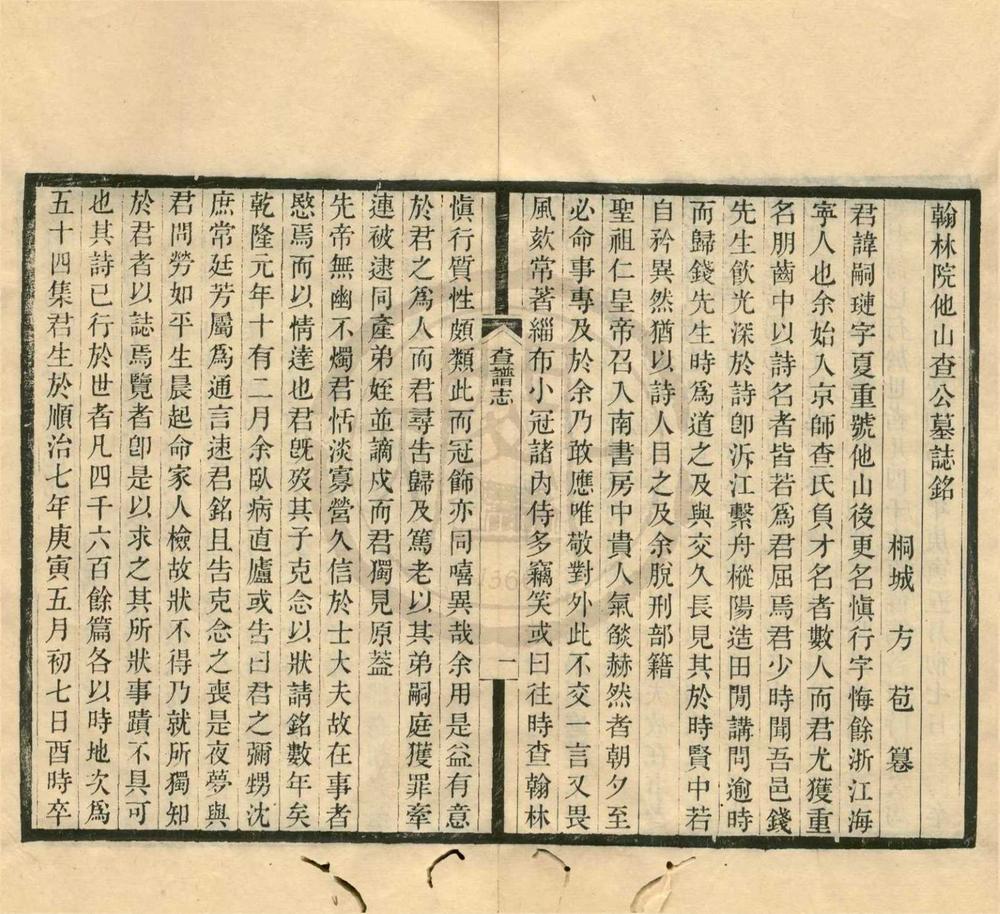 翰林院他山查公墓誌銘
桐城方苞篹
君諱嗣璉字夏重號他山後更名愼行字悔餘浙江海
寧人也余始入京師查氏負才名者數人而君尤獲重
名朋齒中以詩名者皆若爲君屈焉君少時聞吾邑錢
先生飮光深於詩卽泝江繫舟樅陽造田閒講問逾時
而歸錢先生時爲道之及與交久長見其於時賢中若
自矜異然猶以詩人目之及余脫刑部籍
聖祖仁皇帝召入南書房中貴人氣燄赫然者朝夕至
必命事專及於余乃敢應唯敬對外此不交一言又畏
風欬常著緇布小冠諸內侍多竊笑或曰往時查翰林
查譜志
一
愼行質性頗類此而冠飾亦同嘻異哉余用是益有意
於君之爲人而君尋吿歸及篤老以其弟嗣庭獲罪牽
連被逮同產弟姪並謫戍而君獨見原葢
先帝無幽不燭君恬淡寡營久信於士大夫故在事者
愍焉而以情達也君旣歿其子克念以狀請銘數年矣
乾隆元年十有二月余臥病直廬或吿曰君之彌甥沈
庶常廷芳屬爲通言速君銘且吿克念之喪是夜夢與
君問勞如平生晨起命家人檢故狀不得乃就所獨知
於君者以誌焉覽者卽是以求之其所狀事蹟不具可
也其詩已行於世者凡四千六百餘篇各以時地次爲
五十四集君生於順治七年庚寅五月初七日酉時卒